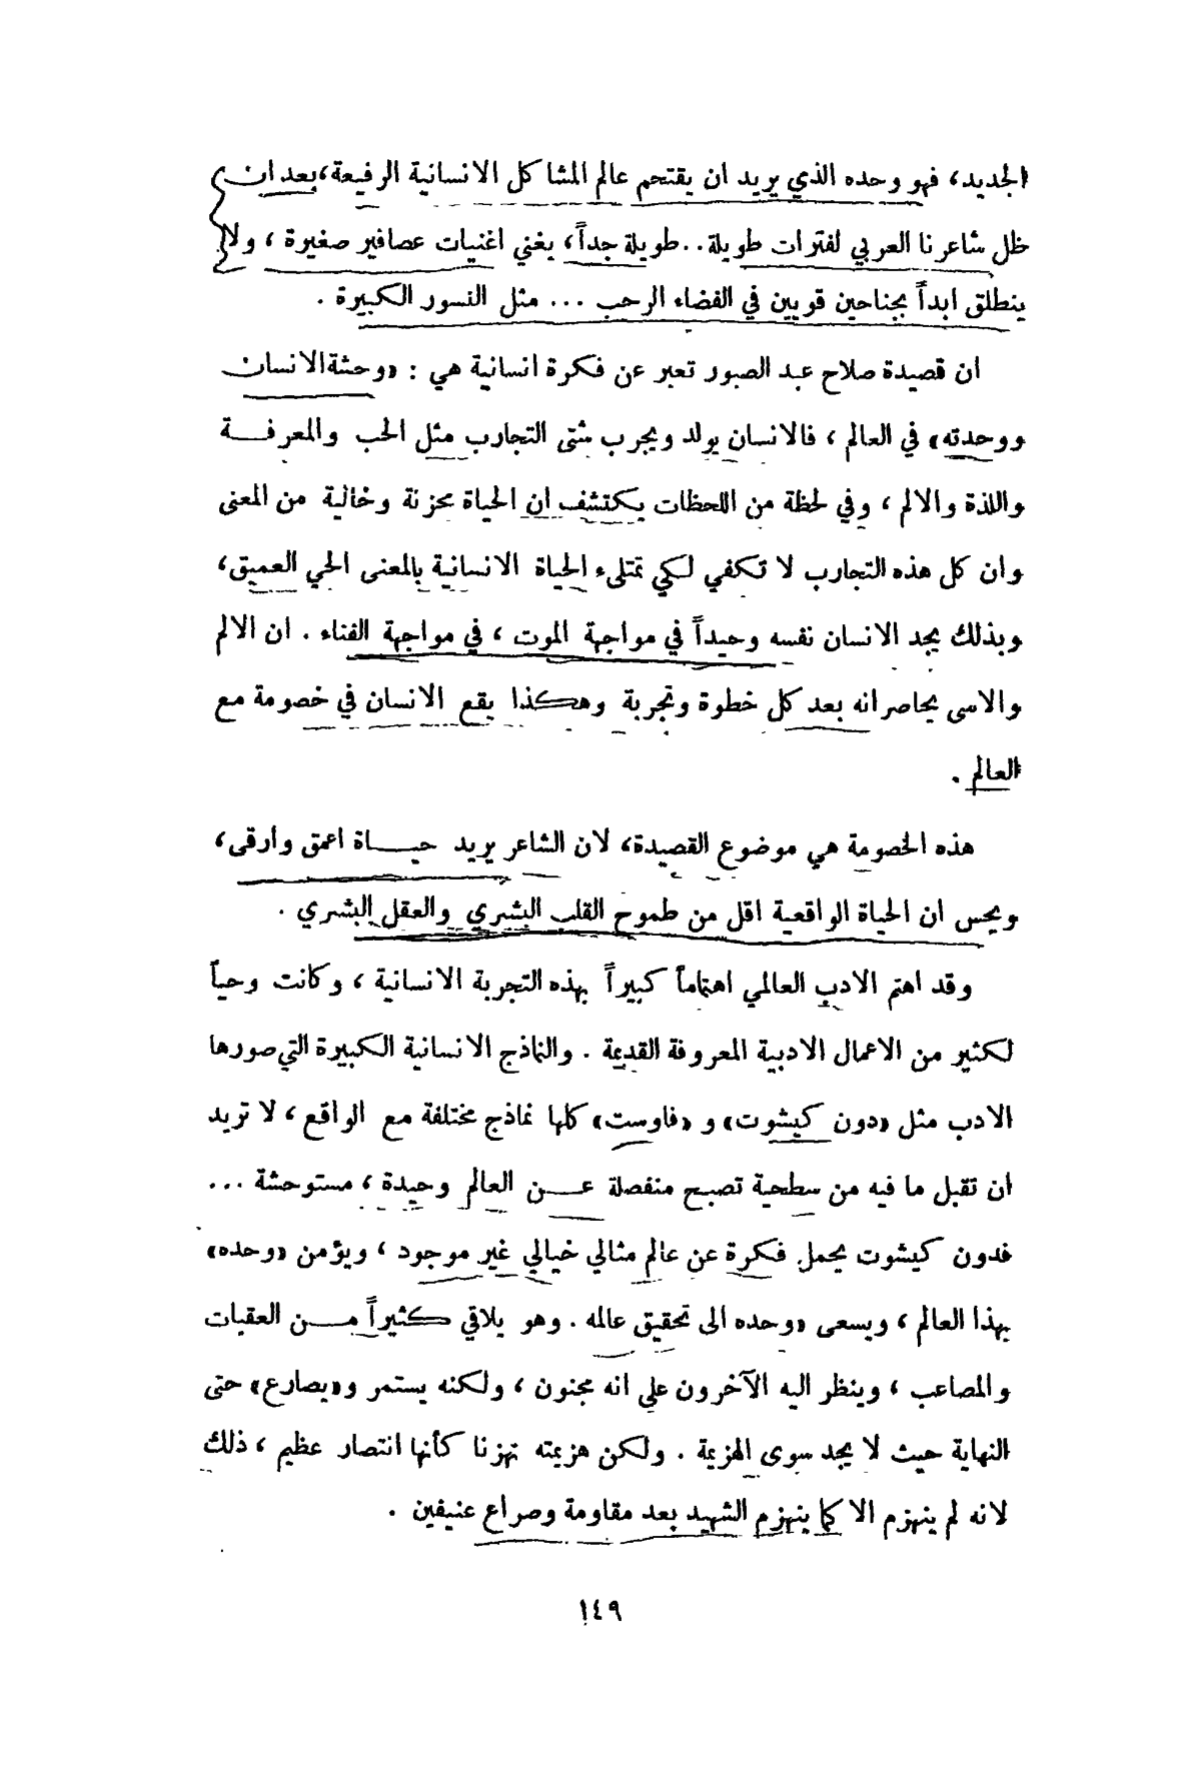 الجديد، فهو وحده الذي يريد ان يقتحم عالم المشاكل الانسانية الرفيعة، بعد ان
ظل شاعرنا العربي لفترات طويلة.. طويلة جداً، يغني اغنيات عصافير صغيرة ، ولا
ينطلق ابداً بجناحين قويين في الفضاء الرحب ... مثل النسور الكبيرة .
ان قصيدة صلاح عبد الصبور تعبر عن فكرة انسانية هي : «وحشة الانسان
ووحدته» في العالم ، فالانسان يولد ويجرب شتى التجارب مثل الحب والمعرفـــة
واللذة والالم ، وفي لحظة من اللحظات يكتشف ان الحياة محزنة وخالية من المعنى
وان كل هذه التجارب لا تكفي لكي تمتلىء الحياة الانسانية بالمعنى الحي العميق،
وبذلك يجد الانسان نفسه وحيداً في مواجهة الموت ، في مواجهة الفناء . ان الالم
والاسى يحاصرانه بعد كل خطوة وتجربة وهكذا يقع الانسان في خصومة مع
العالم .
هذه الخصومة هي موضوع القصيدة، لان الشاعر يريد حيـــاة اعمق وارقى،
ويحس ان الحياة الواقعية اقل من طموح القلب البشري والعقل البشري .
وقد اهتم الادب العالمي اهتماماً كبيراً بهذه التجربة الانسانية ، وكانت وحياً
لكثير من الاعمال الادبية المعروفة القديمة . والنماذج الانسانية الكبيرة التي صورها
الادب مثل «دون كيشوت» و «فاوست» كلها نماذج مختلفة مع الواقع ، لا تريد
ان تقبل ما فيه من سطحية تصبح منفصلة عـــن العالم وحيدة ، مستوحشة ...
فدون كيشوت يحمل فكرة عن عالم مثالي خيالي غير موجود ، ويؤمن «وحده»
بهذا العالم ، ويسعى «وحده الى تحقيق عالمه . وهو يلاقي كثيراً مـــن العقبات
والمصاعب ، وينظر اليه الآخرون على انه مجنون ، ولكنه يستمر و«يصارع» حتى
النهاية حيث لا يجد سوى الهزيمة . ولكن هزيمته تهزنا كأنها انتصار عظيم ، ذلك
لانه لم ينهزم الا كما ينهزم الشهيد بعد مقاومة وصراع عنيفين .
١٤٩